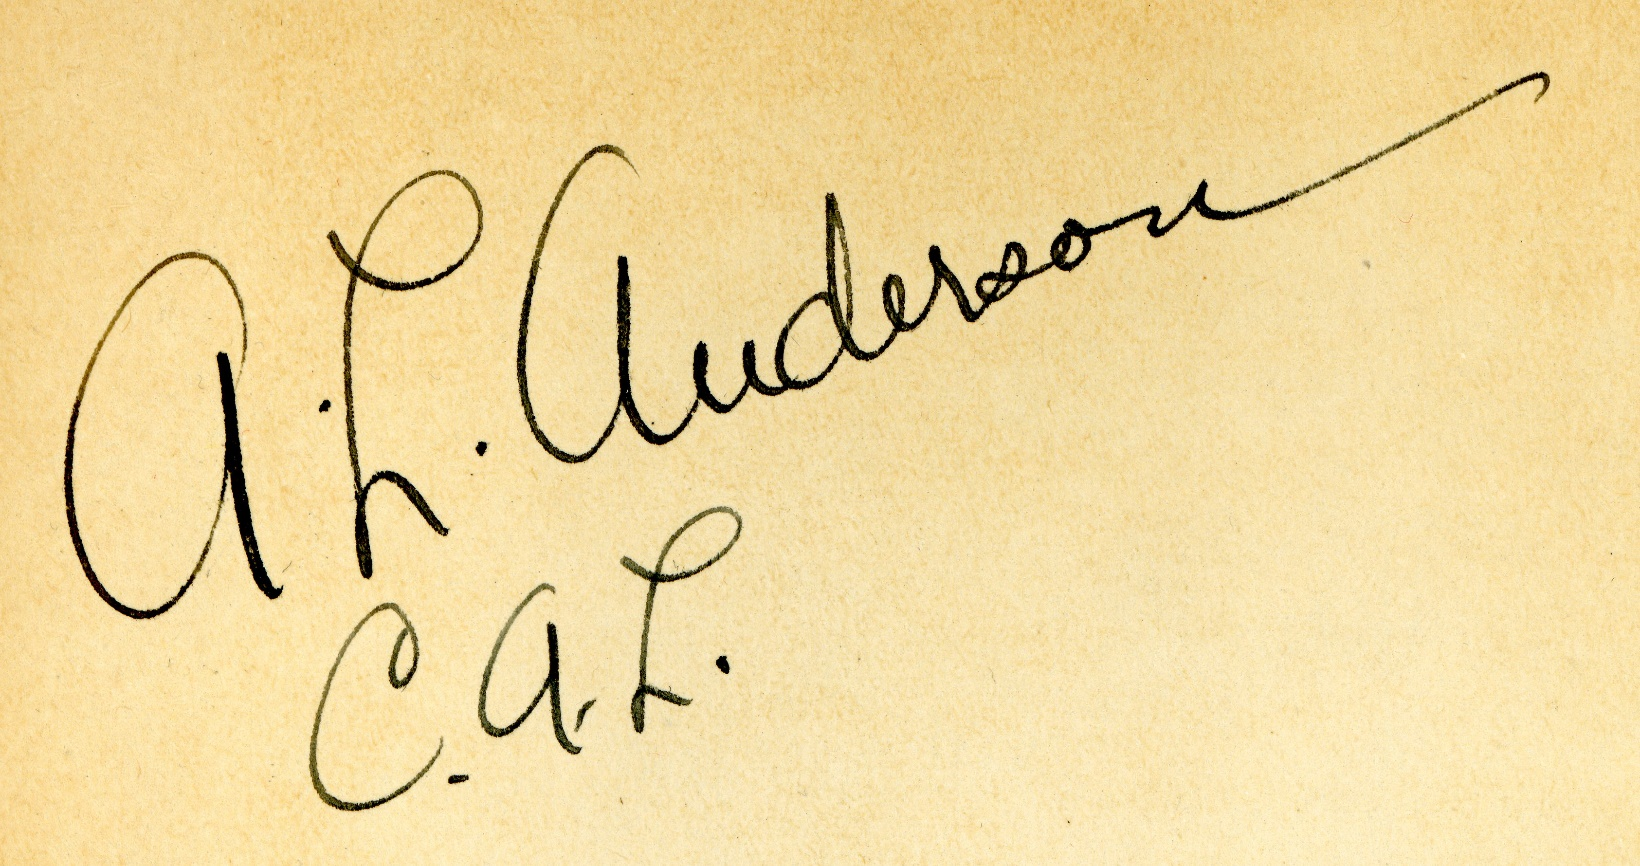 A. L. Anderson
C. A. L.